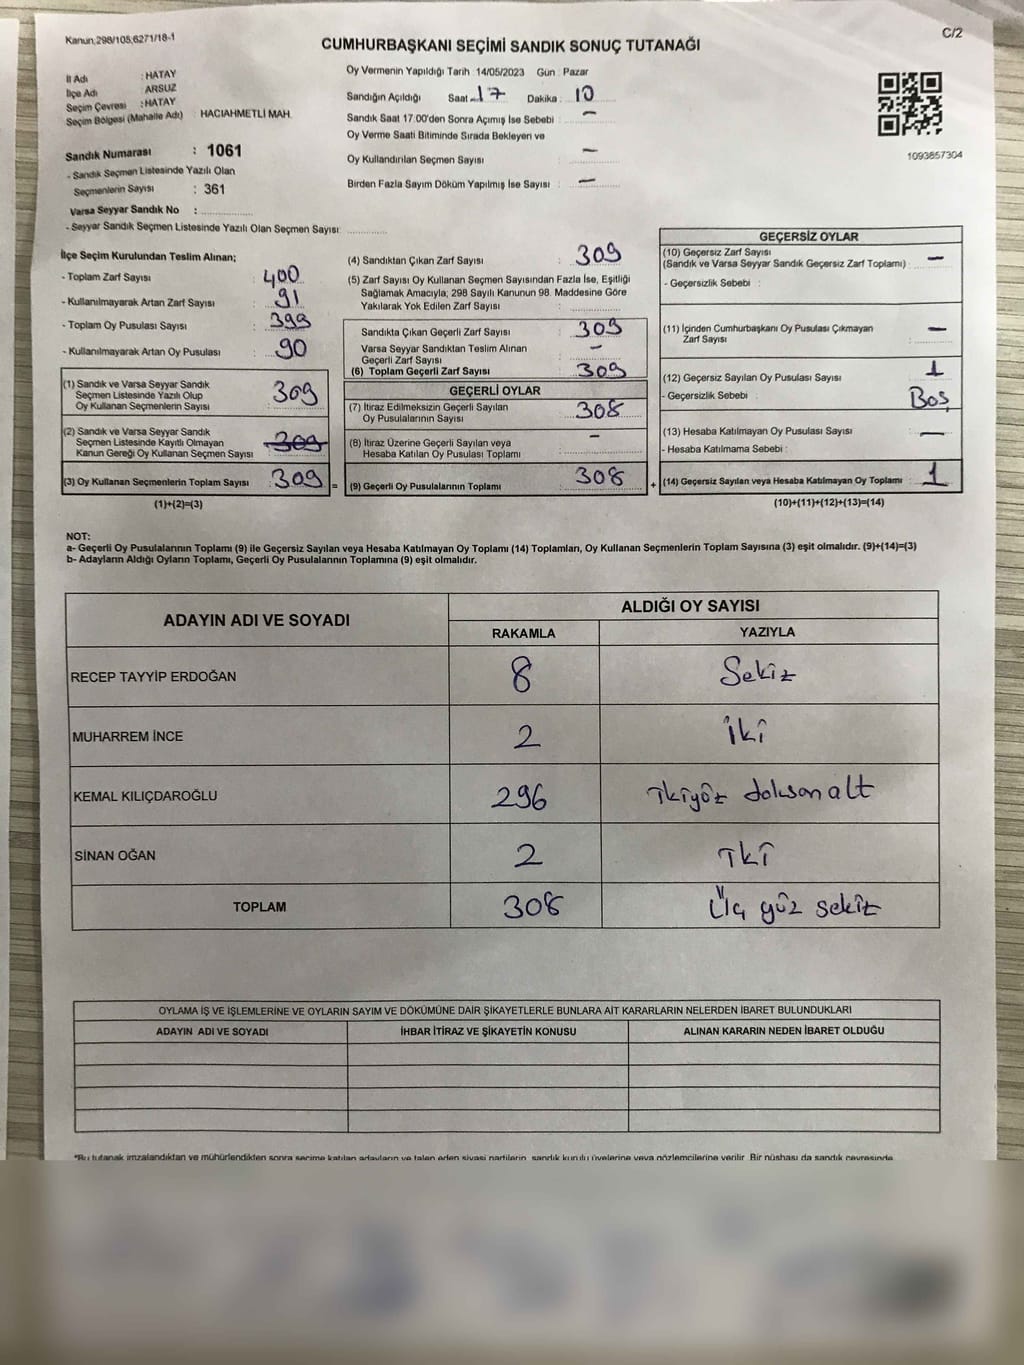 Kanun,298/105,6271/18-1
C/2
CUMHURBAŞKANI SEÇİMİ SANDIK SONUÇ TUTANAĞI
İl Adı : HATAY
İlçe Adı : ARSUZ
Seçim Çevresi : HATAY
Seçim Bölgesi (Mahalle Adı) HACIAHMETLİ MAH.
Sandık Numarası : 1061
- Sandık Seçmen Listesinde Yazılı Olan
Seçmenlerin Sayısı : 361
Varsa Seyyar Sandık No :
- Seyyar Sandık Seçmen Listesinde Yazılı Olan Seçmen Sayısı:
Oy Vermenin Yapıldığı Tarih : 14/05/2023 Gün : Pazar
Sandığın Açıldığı Saat 17 Dakika : 10
Sandık Saat 17:00'den Sonra Açımış İse Sebebi : —
Oy Verme Saati Bitiminde Sırada Bekleyen ve
Oy Kullandırılan Seçmen Sayısı : —
Birden Fazla Sayım Döküm Yapılmış İse Sayısı : —
1093857304
İlçe Seçim Kurulundan Teslim Alınan;
- Toplam Zarf Sayısı : 400
- Kullanılmayarak Artan Zarf Sayısı : 91
- Toplam Oy Pusulası Sayısı : 399
- Kullanılmayarak Artan Oy Pusulası : 90
(1) Sandık ve Varsa Seyyar Sandık
Seçmen Listesinde Yazılı Olup
Oy Kullanan Seçmenlerin Sayısı : 309
(2) Sandık ve Varsa Seyyar Sandık
Seçmen Listesinde Kayıtlı Olmayan
Kanun Gereği Oy Kullanan Seçmen Sayısı : 309
(3) Oy Kullanan Seçmenlerin Toplam Sayısı : 309 =
(1)+(2)=(3)
(4) Sandıktan Çıkan Zarf Sayısı : 309
(5) Zarf Sayısı Oy Kullanan Seçmen Sayısından Fazla İse, Eşitliği
Sağlamak Amacıyla; 298 Sayılı Kanunun 98. Maddesine Göre
Yakılarak Yok Edilen Zarf Sayısı :
Sandıkta Çıkan Geçerli Zarf Sayısı : 309
Varsa Seyyar Sandıktan Teslim Alınan
Geçerli Zarf Sayısı : —
(6) Toplam Geçerli Zarf Sayısı : 309
GEÇERLİ OYLAR
(7) İtiraz Edilmeksizin Geçerli Sayılan
Oy Pusulalarının Sayısı : 308
(8) İtiraz Üzerine Geçerli Sayılan veya
Hesaba Katılan Oy Pusulası Toplamı : —
(9) Geçerli Oy Pusulalarının Toplamı : 308 +
GEÇERSİZ OYLAR
(10) Geçersiz Zarf Sayısı
(Sandık ve Varsa Seyyar Sandık Geçersiz Zarf Toplamı) : —
- Geçersizlik Sebebi :
(11) İçinden Cumhurbaşkanı Oy Pusulası Çıkmayan
Zarf Sayısı : —
(12) Geçersiz Sayılan Oy Pusulası Sayısı : 1
- Geçersizlik Sebebi : Boş
(13) Hesaba Katılmayan Oy Pusulası Sayısı : —
- Hesaba Katılmama Sebebi :
(14) Geçersiz Sayılan veya Hesaba Katılmayan Oy Toplamı : 1
(10)+(11)+(12)+(13)=(14)
NOT:
a- Geçerli Oy Pusulalarının Toplamı (9) ile Geçersiz Sayılan veya Hesaba Katılmayan Oy Toplamı (14) Toplamları, Oy Kullanan Seçmenlerin Toplam Sayısına (3) eşit olmalıdır. (9)+(14)=(3)
b- Adayların Aldığı Oyların Toplamı, Geçerli Oy Pusulalarının Toplamına (9) eşit olmalıdır.
ADAYIN ADI VE SOYADI ALDIĞI OY SAYISI
RAKAMLA YAZIYLA
RECEP TAYYİP ERDOĞAN 8 Sekiz
MUHARREM İNCE 2 İki
KEMAL KILIÇDAROĞLU 296 ikiyüz doksan alt
SİNAN OĞAN 2 iki
TOPLAM 308 Üç yüz sekiz
OYLAMA İŞ VE İŞLEMLERİNE VE OYLARIN SAYIM VE DÖKÜMÜNE DAİR ŞİKAYETLERLE BUNLARA AİT KARARLARIN NELERDEN İBARET BULUNDUKLARI
ADAYIN ADI VE SOYADI İHBAR İTİRAZ VE ŞİKAYETİN KONUSU ALINAN KARARIN NEDEN İBARET OLDUĞU
*Bu tutanak imzalandıktan ve mühürlendikten sonra seçime katılan adayların ve talep eden siyasi partilerin, sandık kurulu üyelerine veya gözlemcilerine verilir. Bir nüshası da sandık çevresinde